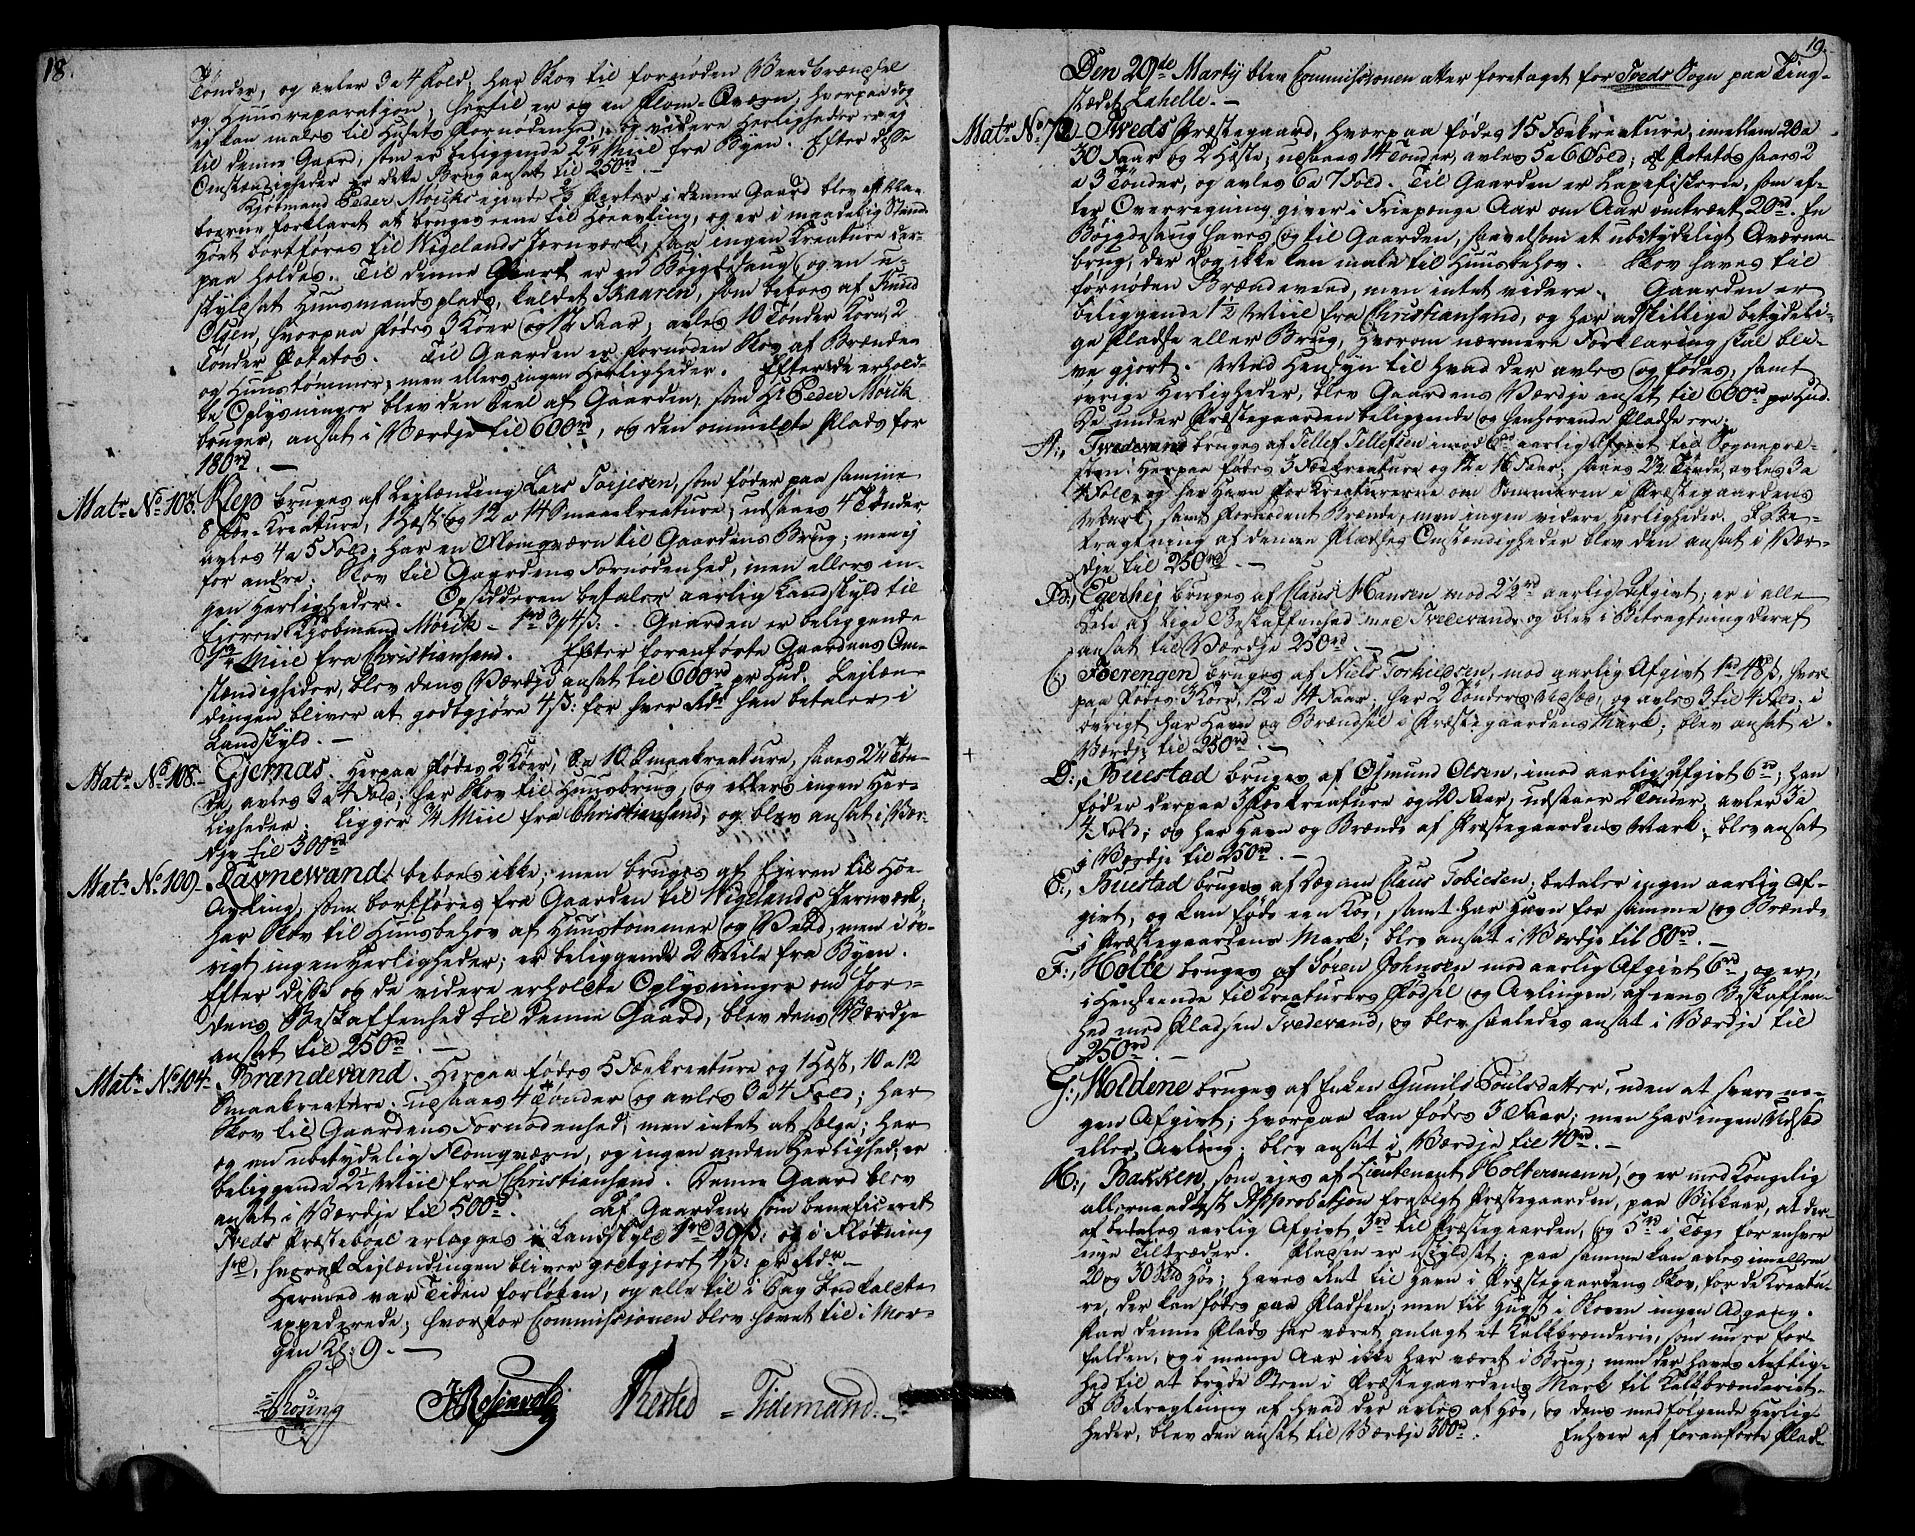 18.
Tønder, og avler 3 a 4 Fold, har Skov til fornøden Veedbrændsel
og Huusreparation; hertil er og en Flom-Qværn, hvorpaa dog
ej kan males til Husets Fornødenhed, og videre Herligheder er ej
til denne Gaard, som er beliggende 2¼ Miil fra Byen. Efter disse
Omstændigheder er dette Brug ansat til 250rd. —
Kjøbmand Peder Mørchs ejende 2/3 Parter i denne Gaard blev af Klæ-
berne forklaret at bruges ene til Høeavling, og er i maadelig Stand
Høet bortføres til Wigelands Jernværk, saa ingen Kreature der-
paa holdes. Til denne Part er en Bøigdesaug, og en u-
skyldsat Huusmandsplads, kaldet Skaaren, som beboes af Knud
Olsen, hvorpaa fødes 3 Køer og 14 Faar, avles 10 Tønder Korn, 2
Tønder Potatos. Til Gaarden er fornøden Skov af Brænde
og Huustømmer, men ellers ingen Herligheder. Efter de erhold-
te Oplysninger blev den Deel af Gaarden, som Hr Peder Mørch
bruger, ansat i Værdje til 600rd, og den ommeldte Plads for
180rd. —
Matr No 103. Rep bruges af Lejlænding Lars Torjesen, som føder paa samme
8 Fæe-Kreature, 1 Hest og 12 a 14 Smaaekreature; udsaaes 4 Tønder
avles 4 a 5 Fold; har en Flomqværn til Gaardens Brug; men ej
for andre. Skov til Gaardens Fornødenhed, men ellers in-
gen Herligheder. Opsidderen betaler aarlig Landskyld til
Ejeren Kjøbmand Mørch — 1rd 3 4ß. Gaarden er beliggende
Miil fra Christiansand. Efter foranførte Gaardens Om-
stændigheder, blev dens Værdje ansat til 600rd pr Hud. Lejlæn-
dingen bliver at godtgjøre 4ß: for hver Rdr han betaler i
Landskyld. —
Matr No 108. Gjernas. Herpaa fødes 2 Køer, 8 a 10 Smaakreature, saaes 2½ Tøn-
de, avles 3 a 4 Fold; har Skov til Huusbrug, og ellers ingen Her-
ligheder. Ligger ¾ Miil fra Christiansand, og blev ansat i Vær-
dje til 300rd
Matr No 109. Ravnevand beboes ikke, men bruges af Ejeren til Høe-
Avling, som bortføres fra Gaarden til Wigelands Jernværk;
har Skov til Huusbehov af Huustømmer og Veed, men i øv-
rigt ingen Herligheder; er beliggende 2 Mile fra Byen.
Efter disse og de videre erholdte Oplysninger om Jor-
dens Beskaffenhed til denne Gaard, blev dens Værdje
ansat til 250rd. —
Matr No 104. Brændevand. Herpaa fødes 5 Fæekreature og 1 Hest, 10 a 12
Smaakreature. udsaaes 4 Tønder og avles 3 a 4 Fold; har
Skov til Gaardens Fornødenhed, men intet at sælge; har
og en ubetydelig Flomqværn, og ingen anden Herlighed; er
beliggende 2½ Miil fra Christiansand. Denne Gaard blev
ansat i Værdje til 500rd. Af Gaarden, som beneficeret
Tveds Præsteboel erlægges i Landskyld 1rd 39ß: og i Flotning
hvoraf Lejlændingen bliver godtgjort 4ß: pr Rdr. —
Hermed var Tiden forløben, og alle til i Dag Indkaldte
expederede; hvorfor Commissionen blev hævet til i Mor-
gen Kl: 9. —
Rosenvold Tidemand. —
19.
Den 29de Martij blev Commissionen atter foretaget for Tveds Sogn paa Ting-
stædet Lahelle. —
Matr No 72. Tveds Præstegaard, hvorpaa fødes 15 Fæekreature, imellem 20 a
30 Faar og 2 Heste; udsaaes 14 Tønder, avles 5 a 6 Fold; af Potatos saaes 2
a 3 Tønder, og avles 6 a 7 Fold. Til Gaarden er Laxefiskerie, som ef-
ter Overregning giver i Friepenge Aar om Aar omtrænt 20rd. En
Bøigdesaug haves og til Gaarden, saavelsom et ubetydeligt Qværne-
brug, der dog ikke kan male til Huusbehov. Skov haves til
fornøden Brændeved, men intet videre. Gaarden er
beliggende 1½ Miil fra Christiansand, og har adskillige betydeli-
ge Pladse eller Brug, hvorom nærmere Forklaring skal bli-
ve gjort. Med Hensyn til hvad der avles og fødes, samt
øvrige Herligheder, blev Gaardens Værdje ansat til 600rd pr Hud.
De under Præstegaarden beliggende og henhørende Pladse ere:
A:, Tvedevand bruges af Tellef Tellefsen imod 6rd aarlig Afgivt til Sognepræ-
sten. Herpaa fødes 3 Fæekreature og 12 a 16 Faar; saaes 2½ Tønde, avles 3 a
4 Fold, og har Havn for Kreaturerne om Sommeren i Præstegaardens
Mark, samt fornødent Brænde, men ingen videre Herligheder. I Be-
tragtning af denne Pladses Omstændigheder blev den ansat i Vær-
dje til 250rd. —
B:, Egerhej bruges af Claus Hansen mod 2½rd aarlig Afgivt; er i alle
Dele af lige Beskaffenhed med Tvedevand, og blev i Betragtning deraf
ansat til Værdje 250rd.
C:, Foerengen bruges af Niels Torkildsen, mod aarlig Afgivt 1rd 48ß, hvor-
paa fødes 3 Køer, 12 a 14 Faar. har 2 Tønders Udsæd, og avles 3 til 4 Fold, i
øvrigt har Havn og Brændsel i Præstegaardens Mark; blev ansat i
Værdje til 250rd. —
D:, Buestad bruges af Osmund Olsen, imod aarlig Afgivt 6rd; han
føder derpaa 3 Fæekreature og 20 Faar, udsaaer 2 Tønder, avler 3 a
4 Fold; og har Havn og Brænde af Præstegaardens Mark; blev ansat
i Værdje til 250rd. —
E:, Buestad bruges af Claus Tobiesen; betaler ingen aarlig Af-
givt, og kan føde een Koe, samt har Havn for samme og Brænde
i Præstegaardens Mark; blev ansat i Værdje til 80rd. —
F:, Holte bruges af Søren Johnsen mod aarlig Afgivt 6rd, og er,
i Henseende til Kreaturers Fødsel og Avlingen, af eens Beskaffen-
hed med Pladsen Tvedevand, og blev saaledes ansat i Værdje til
250rd. —
G:, Moldene bruges af Enken Gunild Poulsdatter, uden at svare no-
gen Afgivt; hvorpaa kan fødes 3 Faar; men har ingen Udsæd
eller Avling; blev ansat i Værdje til 40rd. —
H:, Bakken, som ejes af Lieutenant Holtermann, og er med Kongelig
allernaadigst Approbation frasolgt Præstegaarden, paa Vilkaar, at der-
af betales aarlig Afgivt 3rd til Præstegaarden, og 5rd i Tøge for enhver
nye Tiltræder. Pladsen er uskyldsat; paa samme kan avles imellem
20 og 30 Høe; haves Ret til Havn i Præstegaardens Skov, for de Kreatu-
re, der kan fødes paa Pladsen; men til Hugst i Skoven ingen Adgang.
Paa denne Plads har været anlagt et Kalkbrænderie, som nu er for-
falden, og i mange Aar ikke har været i Brug; men der haves Rettig-
hed til at bryde Steen i Præstegaardens Mark til Kalkbrænderiet.
I Betragtning af hvad der avles af Høe, og dens medfølgende Herlig-
heder, blev den ansat til Værdje 300rd. Enhver af foranførte Plad-